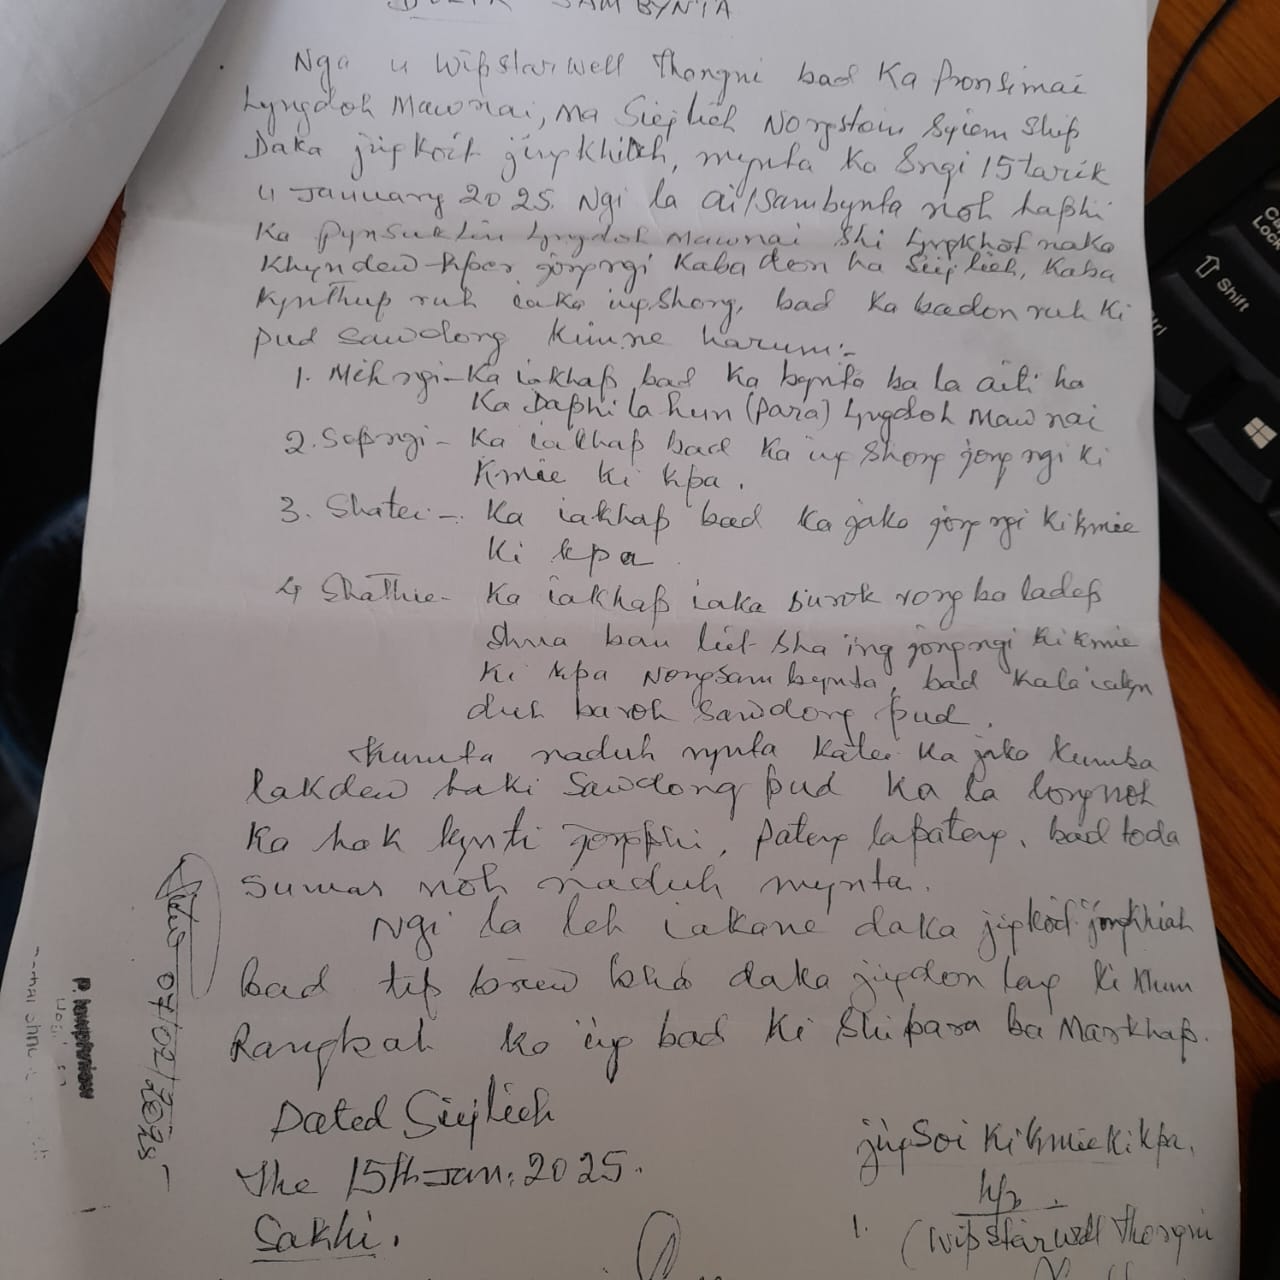 SAMBYNTA
Nga u Wipstarwell Thongni bad Ka Pronsimai
Lyngdoh Mawnai, na Siejlieh Nongstoin Syiem Ship
Daka jingkoit jingkhiah, mynta ka Sngi 15 tarik
u January 2025. Ngi la ai/sambynta noh haphi
Ka Pynsuklin Lyngdoh Mawnai Shi Lyngkhot naka
Khyndew-kper jongngi Kaba don ha Siejlieh, Kaba
Kynthup ruh iaka ïing Shong, bad Ka badon ruh Ki
pud sawdong kiinne harum:-
1. Mihngi - Ka iakhap bad Ka bynta ba la aiti ha
Ka Daphi la hun (para) Lyngdoh Mawnai
2. Sepngi - Ka iakhap bad Ka ïing Shong jong ngi ki
Kmie ki kpa.
3. Shatei - Ka iakhap bad Ka jaka jong ngi Ki kmie
Ki kpa
4 Shathie - Ka iakhap iaka surok rong ba ladep
shna ban leit sha ïing jongngi Ki kmie
Ki kpa Nongsambynta, bad kala iakyn
duh baroh sawdong pud.
Kumta naduh mynta Katei Ka jaka kumba
lakdew haki sawdong pud Ka la long noh
Ka hok kynti jongphi, pateng lapateng, bad toda
sumar noh naduh mynta.
Ngi la leh iakane daka jingkoit jingkhiah
bad tip briew bha daka jingdon lang ki khun
Rangbah ka ïing bad Ki Shipara ba Markhap.
07/02/2025
Dated Siejlieh
The 15th Jan. 2025.
Sakhi.
jingsoi Ki kmie Ki kpa.
1. (Wipstarwell Thongni